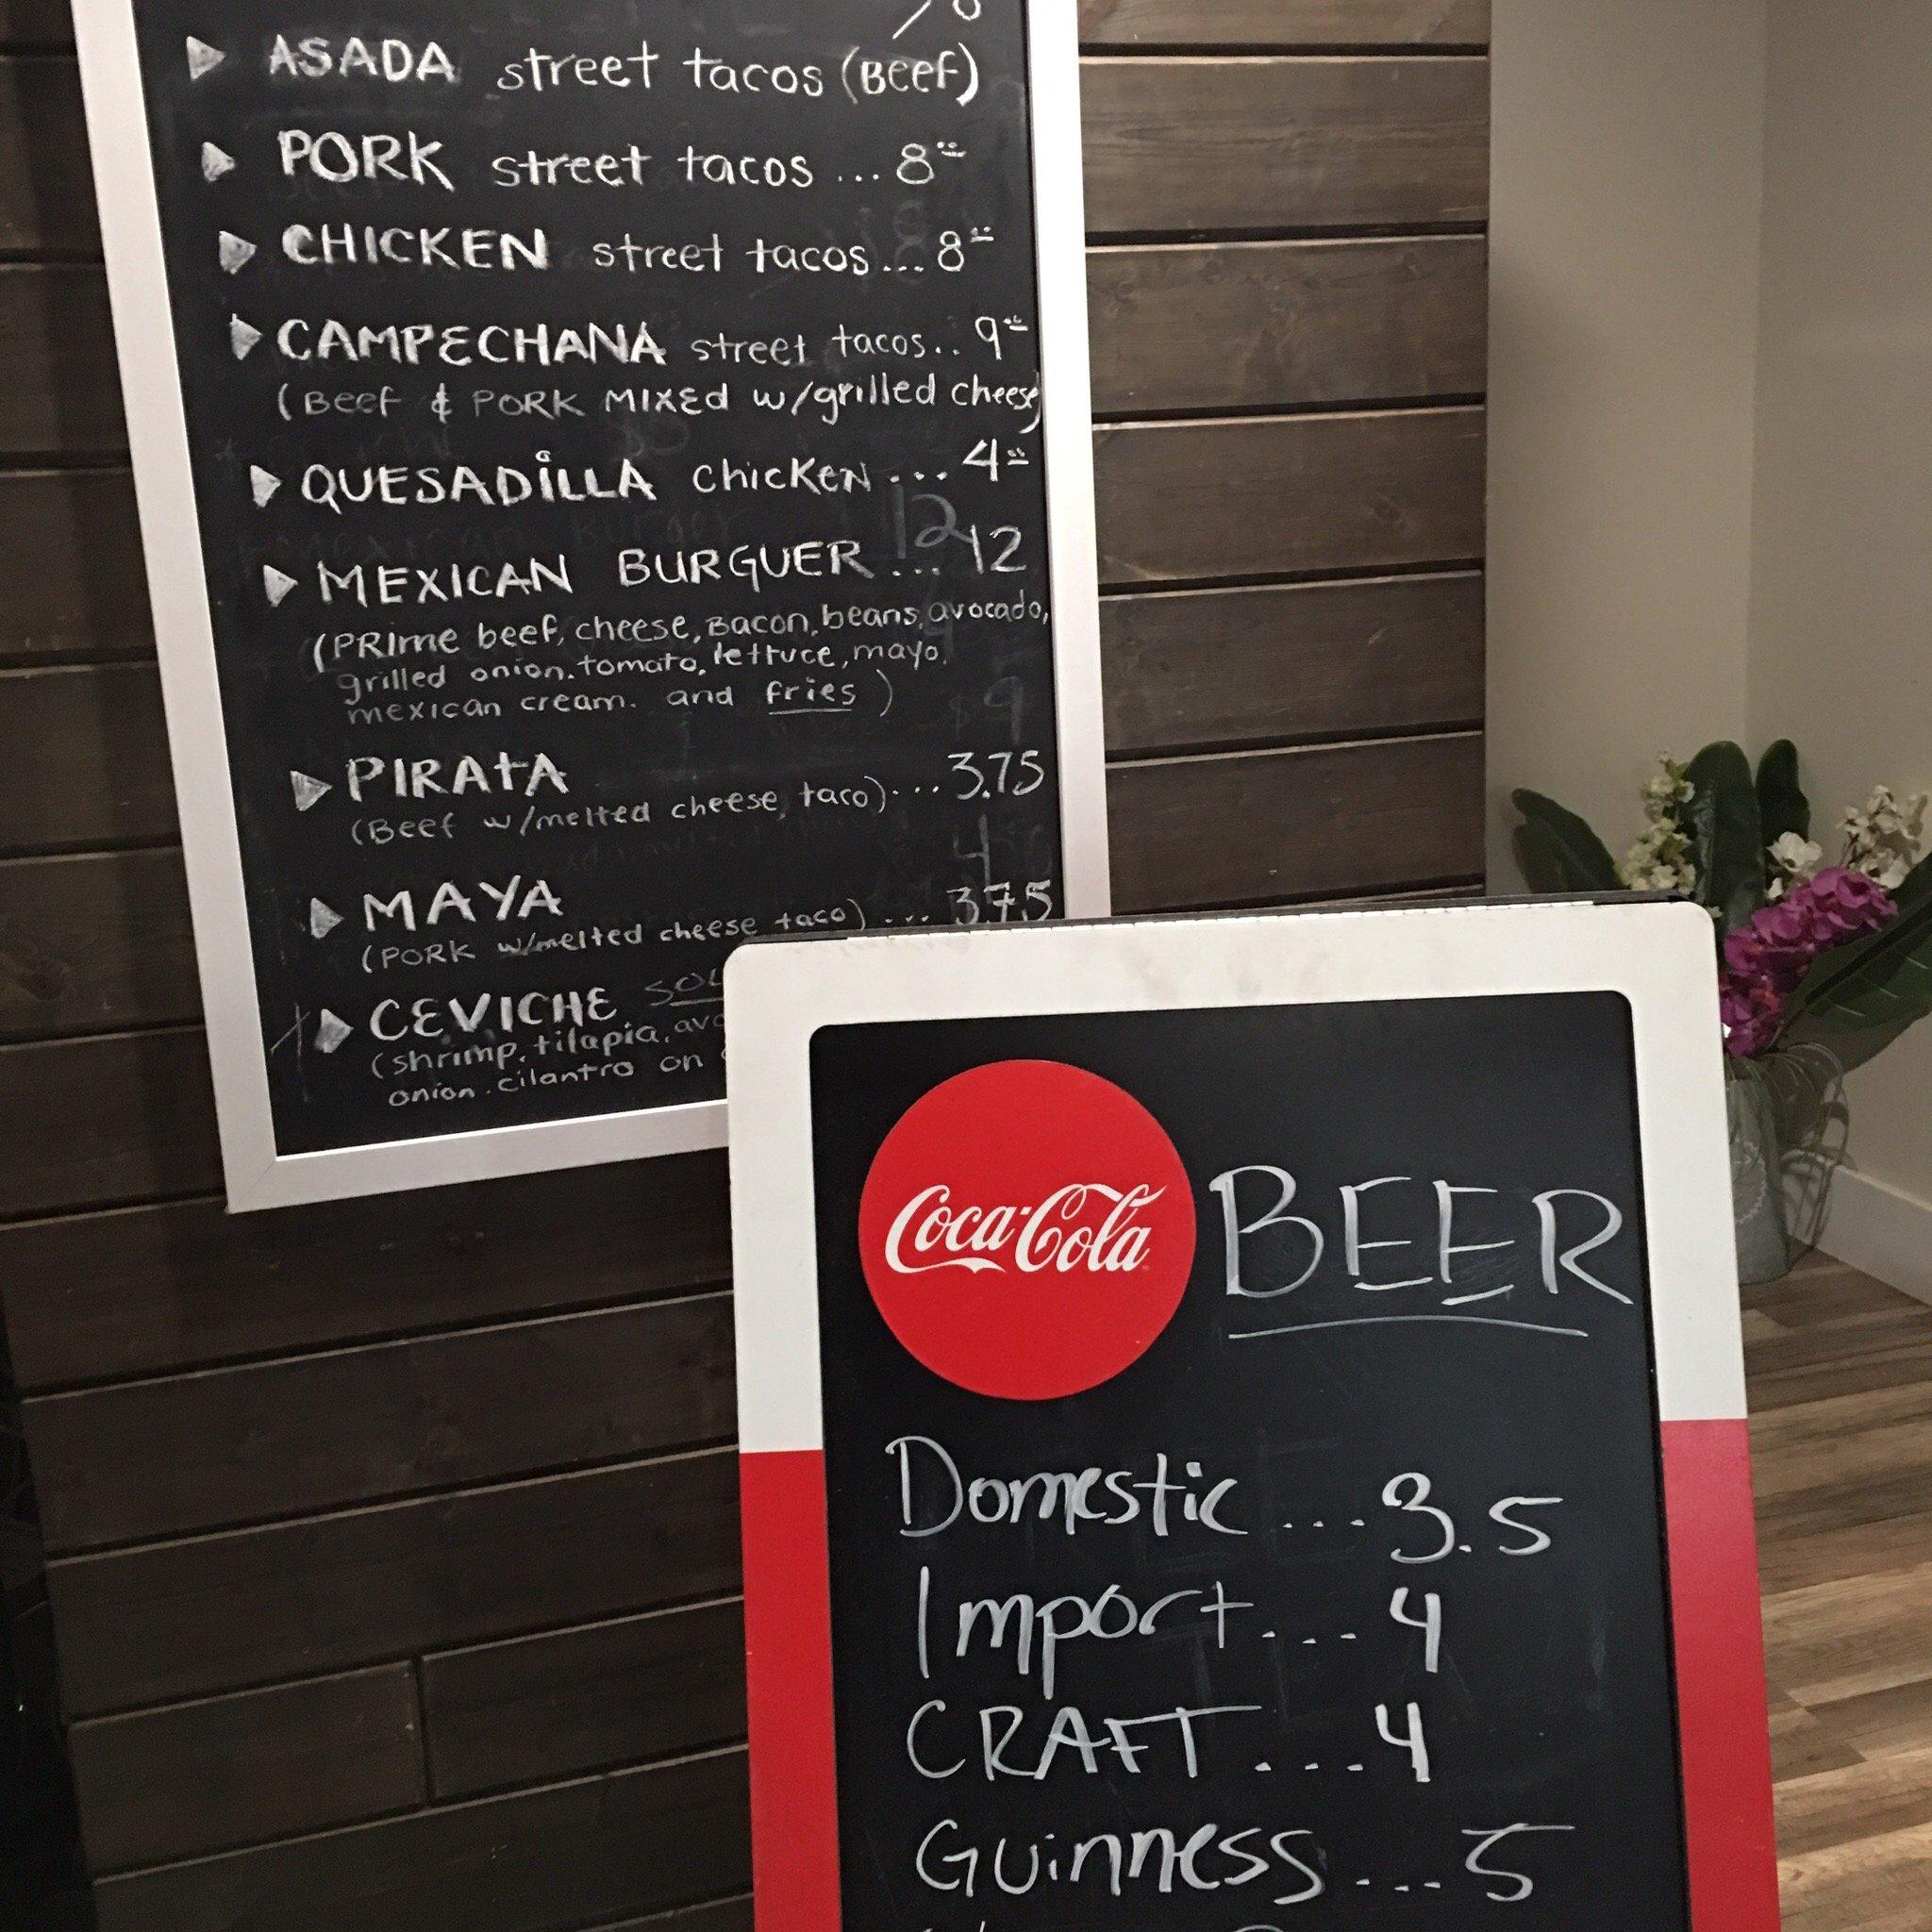 ASADA street tacos (Beef)
PORK street tacos ... 8
CHICKEN street tacos ... 8
CAMPECHANA street tacos.. 9
(Beef & PORK MIXED w/grilled cheese)
QUESADILLA chicken ... 4
MEXICAN BURGUER ... 12
(PRIme beef, cheese, Bacon, beans, avocado,
grilled onion. tomato, lettuce, mayo,
mexican cream. and fries)
PIRATA
(Beef w/melted cheese taco) ... 3.75
MAYA
(PORK w/melted cheese taco) ... 3.75
CEVICHE
(shrimp, tilapia,
onion. cilantro on
Coca-Cola BEER
Domestic ... 3.5
Import ... 4
CRAFT ... 4
Guinness ... 5